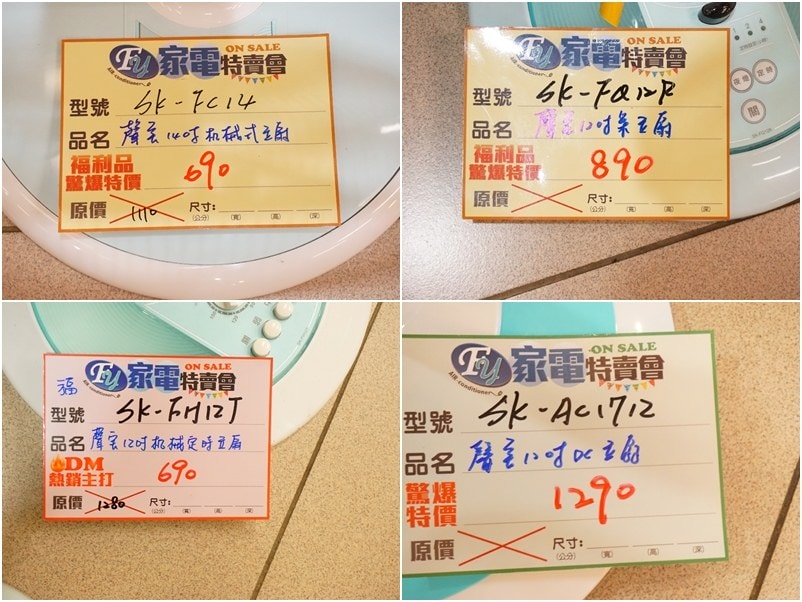 Fy 家電特賣會 ON SALE
Air conditioner
型號 SK-FC14
品名 聲寶14吋机械式立扇
福利品
驚爆特價 690
原價 1110 尺寸:
(公分) (寬) (高) (深)
Fy 家電特賣會 ON SALE
Air conditioner
型號 SK-FQ12R
品名 聲寶12吋 立扇
福利品
驚爆特價 890
原價 尺寸:
(公分) (寬) (高) (深)
2 4
復燈 定時
關
Fy 家電特賣會 ON SALE
Air conditioner
福
型號 SK-FH12T
品名 聲宝12吋机械定时立扇
DM
熱銷主打 690
原價 1280 尺寸:
(公分) (寬) (高) (深)
Fy 家電特賣會 ON SALE
Air conditioner
型號 SK-AC1712
品名 聲宝12吋DC立扇
驚爆
特價 1290
原價 尺寸:
(公分) (寬) (高) (深)